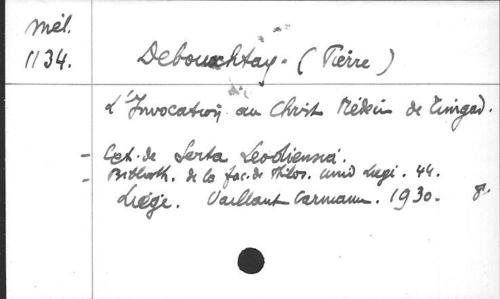 Mél.
1134.
Debouxhtay. (Pierre)
L'Invocation au Christ Médecin de Timgad.
- Ext. de Serta Leodiensia.
- Biblioth. de la fac. de Philos. univ Liège. 44.
Liège. Vaillant Carmann. 1930. 8°.